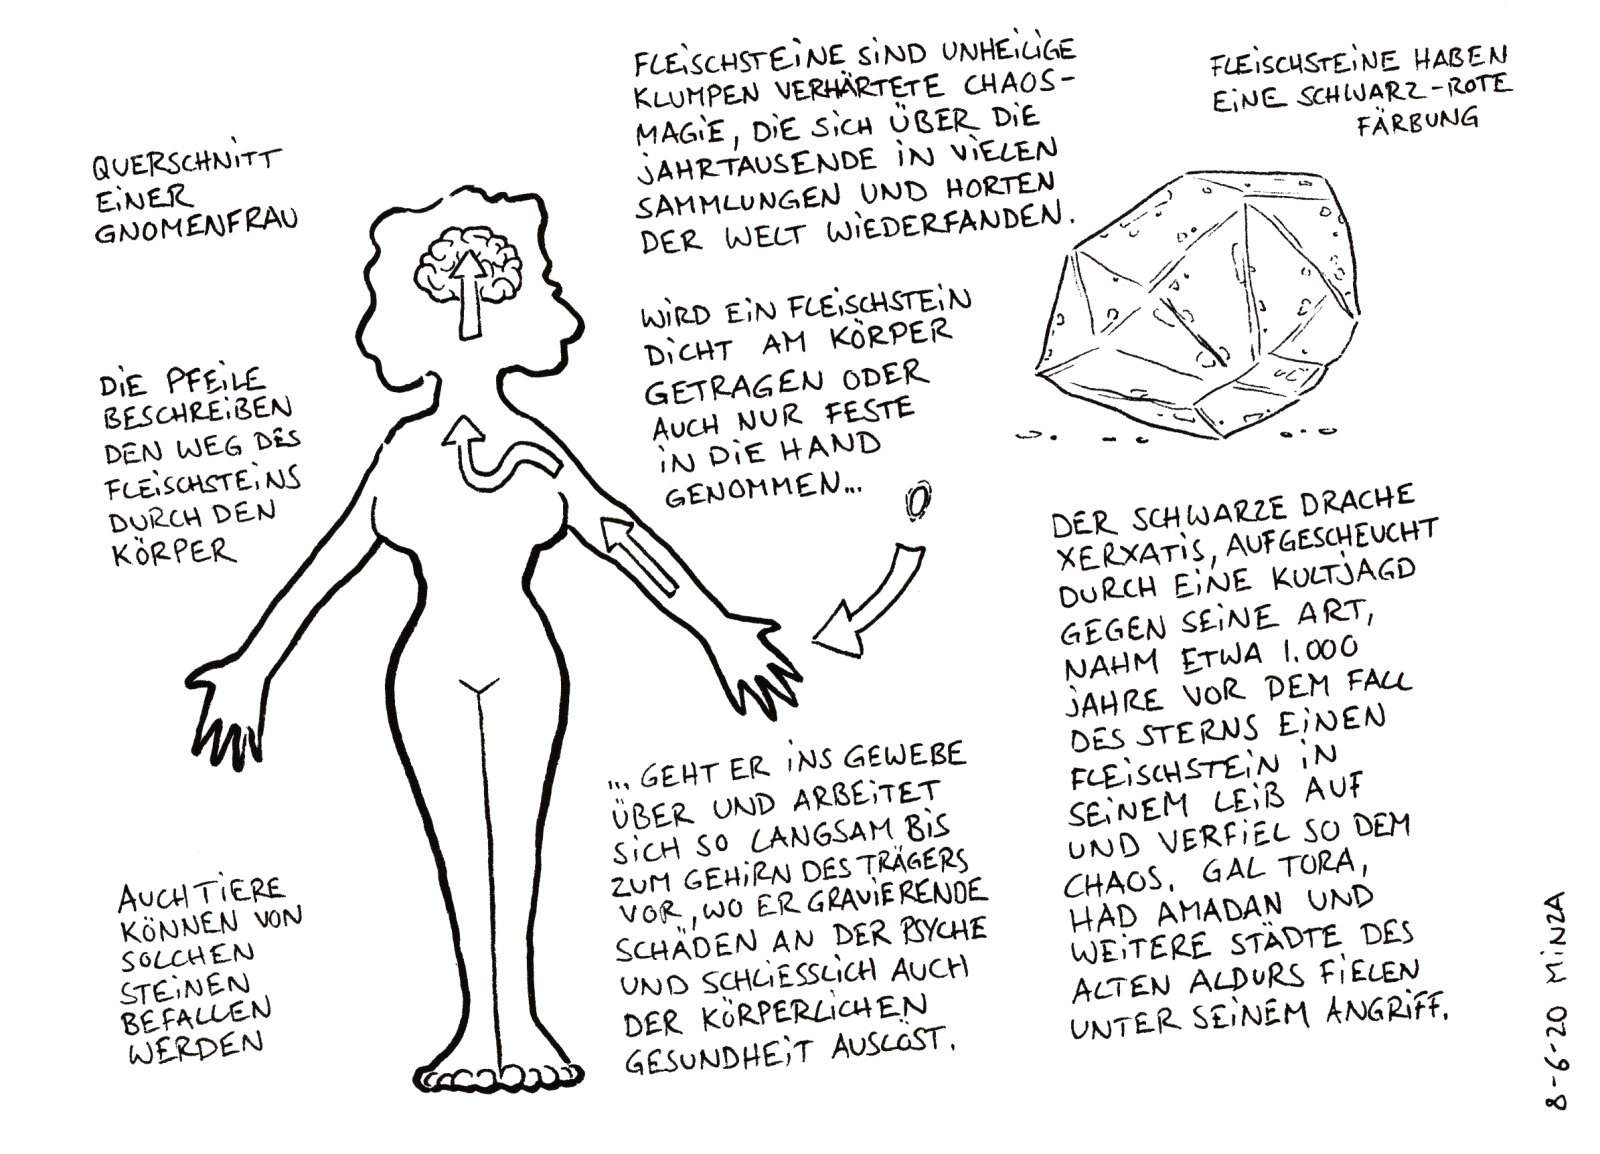 QUERSCHNITT
EINER
GNOMENFRAU
DIE PFEILE
BESCHREIBEN
DEN WEG DES
FLEISCHSTEINS
DURCH DEN
KÖRPER
AUCH TIERE
KÖNNEN VON
SOLCHEN
STEINEN
BEFALLEN
WERDEN
FLEISCHSTEINE SIND UNHEILIGE
KLUMPEN VERHÄRTETE CHAOS-
MAGIE, DIE SICH ÜBER DIE
JAHRTAUSENDE IN VIELEN
SAMMLUNGEN UND HORTEN
DER WELT WIEDERFANDEN.
WIRD EIN FLEISCHSTEIN
DICHT AM KÖRPER
GETRAGEN ODER
AUCH NUR FESTE
IN DIE HAND
GENOMMEN...
... GEHT ER INS GEWEBE
ÜBER UND ARBEITET
SICH SO LANGSAM BIS
ZUM GEHIRN DES TRÄGERS
VOR, WO ER GRAVIERENDE
SCHÄDEN AN DER PSYCHE
UND SCHLIESSLICH AUCH
DER KÖRPERLICHEN
GESUNDHEIT AUSLÖST.
FLEISCHSTEINE HABEN
EINE SCHWARZ-ROTE
FÄRBUNG
DER SCHWARZE DRACHE
XERXATIS, AUFGESCHEUCHT
DURCH EINE KULTJAGD
GEGEN SEINE ART,
NAHM ETWA 1.000
JAHRE VOR DEM FALL
DES STERNS EINEN
FLEISCHSTEIN IN
SEINEM LEIB AUF
UND VERFIEL SO DEM
CHAOS. GAL TORA,
HAD AMADAN UND
WEITERE STÄDTE DES
ALTEN ALDURS FIELEN
UNTER SEINEM ANGRIFF.
8-6-20 MINZA